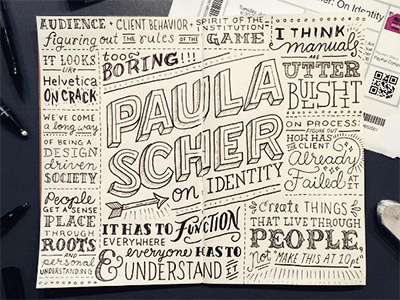 AUDIENCE + CLIENT BEHAVIOR + SPIRIT OF THE INSTITUTION
figuring out the rules OF THE GAME
IT LOOKS
LIKE
Helvetica
ON CRACK.
WE'VE COME
a long way
OF BEING A
DESIGN
driven
SOCIETY
People
GET A SENSE
OF PLACE
THROUGH
ROOTS
AND personal
UNDERSTANDING
too
BORING!!!
PAULA
SCHER
on IDENTITY
IT HAS TO FUNCTION
EVERYWHERE
& everyone HAS TO
UNDERSTAND IT
I THINK
manuals
ARE
UTTER
BULLSHIT
ON PROCESS:
FIGURE OUT
HOW HAS
THE CLIENT
Already
Failed AT IT
Create THINGS
THAT LIVE THROUGH
PEOPLE,
not "MAKE THIS AT 10pt"
: On Identity